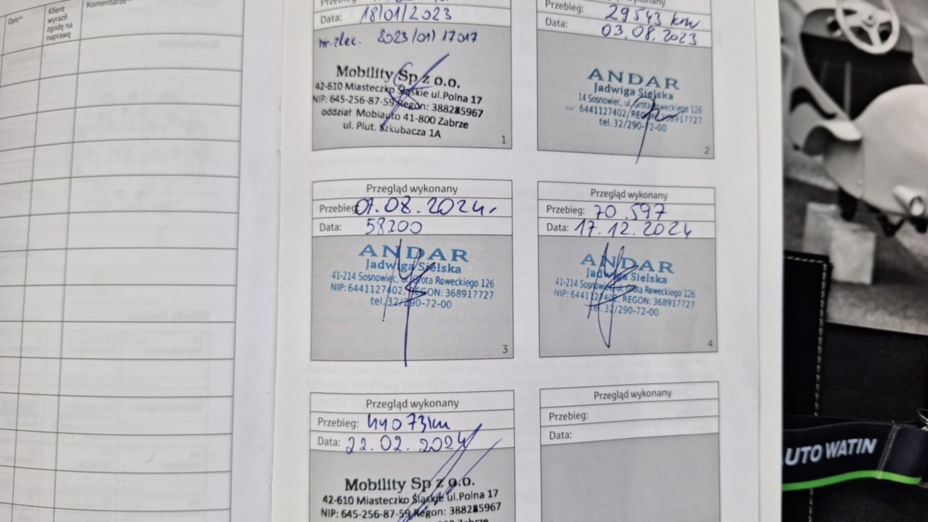 Opis**
Klient
wyraził
zgodę na
naprawę
Komentarze
Data: 18/01/2023
nr zlec. 2023/01/17017
Mobility Sp z o.o.
42-610 Miasteczko Śląskie ul.Polna 17
NIP: 645-256-87-59 Regon: 388285967
oddział Mobiauto 41-800 Zabrze
ul. Plut. Szkubacza 1A
1
Przebieg: 29543 km
Data: 03.08.2023
ANDAR
Jadwiga Sielska
14 Sosnowiec, ul. Grota Roweckiego 126
6441127402, REGON: 368917727
tel.32/290-72-00
2
Przegląd wykonany
Przebieg: 07.08.2024r.
Data: 58200
ANDAR
Jadwiga Sielska
41-214 Sosnowiec, ul. Grota Roweckiego 126
NIP: 6441127402, REGON: 368917727
tel.32/290-72-00
3
Przegląd wykonany
Przebieg: 70.597
Data: 17.12.2024
ANDAR
Jadwiga Sielska
41-214 Sosnowiec, ul. Grota Roweckiego 126
NIP: 6441127402, REGON: 368917727
tel.32/290-72-00
4
Przegląd wykonany
Przebieg: 44073km
Data: 22.02.2024
Mobility Sp z o.o.
42-610 Miasteczko Śląskie ul.Polna 17
NIP: 645-256-87-59 Regon: 388285967
Zabrze
Przegląd wykonany
Przebieg:
Data:
UTO WATIN